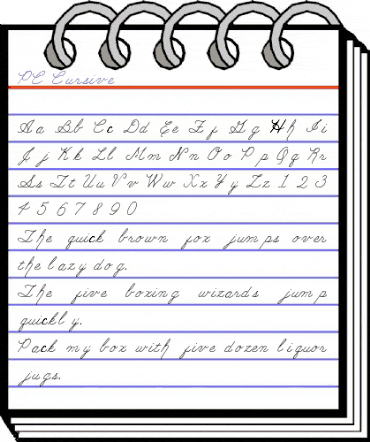 PC Cursive
Aa Bb Cc Dd Ee Ff Gg Hh Ii
Jj Kk Ll Mm Nn Oo Pp Qq Rr
Ss Tt Uu Vv Ww Xx Yy Zz 1 2 3
4 5 6 7 8 9 0
The quick brown fox jumps over
the lazy dog.
The five boxing wizards jump
quickly.
Pack my box with five dozen liquor
jugs.